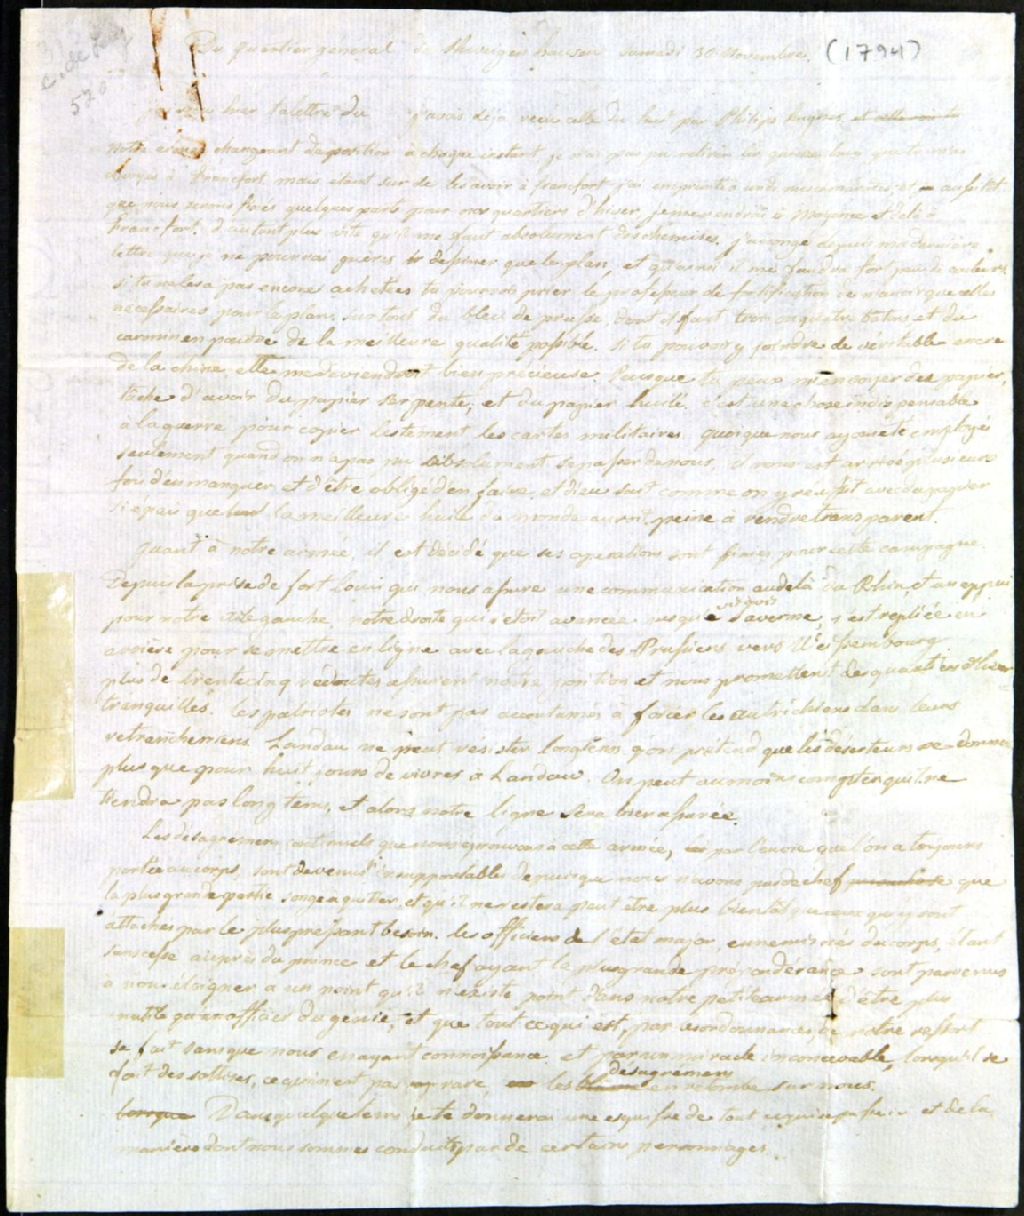 Du quartier général de samedi 30 Novembre. (1794)
520
hier ta lettre du j'avais déja reçu celle du par Philips
notre armée changeant de position à chaque instant, je n'ai pas pu retirer
à Francfort, mais etant sur de les avoir à francfort j'ai emprunté a un de mes camarades, et aussitot
que nous serons fixés quelque part pour nos quartiers d'hiver, j'enverrai à Mayence et delà à
Francfort. D'autant plus vite qu'il me faut absolument des chemises. j'ai songé depuis ma derniere
lettre que je ne pourrai gueres dessiner que le plan, et qu'ainsi il me faudra fort peu de couleurs
si tu ne les a pas encore achetées tu pourrois prier le professeur de fortification de n'avoir que celles
necessaires pour le plan, surtout du bleu de prusse, dont il faut trois ou quatre batons et du
carmin en poudre de la meilleure qualité possible. Si tu pouvois y joindre de veritable encre
de la chine elle me deviendroit bien précieuse. Puisque tu peux m'envoyer du papier,
tache d'avoir du papier serpente, et du papier huilé. c'est une chose indispensable
à la guerre pour copier lestement les cartes militaires. quoique nous ayons été employés
seulement quand on n'a pas pu absolument se passer de nous, il nous est arrivé plusieurs
fois d'en manquer et d'être obligé d'en faire, et dieu sait comme on y réussit avec du papier
si épais que la meilleure huile du monde auroit peine à rendre transparent.
Quant à notre armée, il est décidé que ses operations sont finies pour cette campagne.
Depuis la prise de fort Louis qui nous assure une communication au delà du Rhin, et un appui
pour notre aile gauche, notre droite qui s'étoit avancée jusqu'a Saverne, s'est repliée en
arriere pour se mettre en ligne avec la gauche des Prussiens vers Weissembourg
plus de trente cinq redoutes assurent notre position et nous promettent des quartiers d'hiver
tranquilles. les patriotes ne sont pas accoutumés à forcer les autrichiens dans leurs
retranchemens. Landau ne peut résister longtems on prétend que les déserteurs ne donnent
plus que pour huit jours de vivres à Landau. On peut au moins compter qu'il ne
tiendra pas long tems, et alors notre ligne sera bien assurée.
Les désagremens continuels que nous éprouvons à cette armée, par l'envie que l'on a toujours
portée au corps, sont devenus si insupportables depuis que nous n'avons pas de chef que
la plus grande partie songe à quitter, et qu'il ne restera peut être plus bientot que ceux qui y sont
attachés par le plus pressant besoin. les officiers de l'état major, ennemis nés du corps, étant
sans cesse auprès du prince et le chef ayant la plus grande prépondérance sont parvenus
à nous éloigner à un point qu'il n'existe point dans notre petite armée d'être plus
inutile qu'un officier du génie, et que tout ce qui est, par les ordonnances, de notre ressort
se fait sans que nous en ayons connoissance et par un miracle inconcevable, lorsqu'il se
fait des sottises, ce qui n'est pas rare, les désagremens en retombe sur nous.
Dans quelque tems je te donnerai une esquisse de tout ce qui se passe ici et de la
maniere dont nous sommes conduits par de certains personnages.